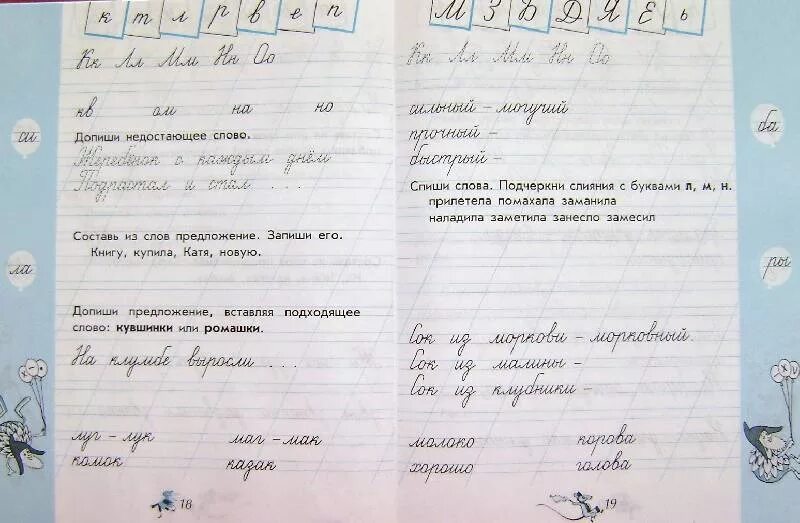 к т л р в е п
Кк Лл Мм Нн Оо
кв ом на но
Допиши недостающее слово.
Жеребёнок с каждым днём
Подрастал и стал . . .
Составь из слов предложение. Запиши его.
Книгу, купила, Катя, новую.
Допиши предложение, вставляя подходящее
слово: кувшинки или ромашки.
На клумбе выросли . . .
луг – лук маг – мак
комок казак
18
си
ла
М З Ъ Д Я Ё ь
Кк Лл Мм Нн Оо
сильный – могучий
прочный –
быстрый –
Спиши слова. Подчеркни слияния с буквами л, м, н.
прилетела помахала заманила
наладила заметила занесло замесил
Сок из моркови – морковный.
Сок из малины –
Сок из клубники –
молоко корова
хорошо голова
19
ба
ры